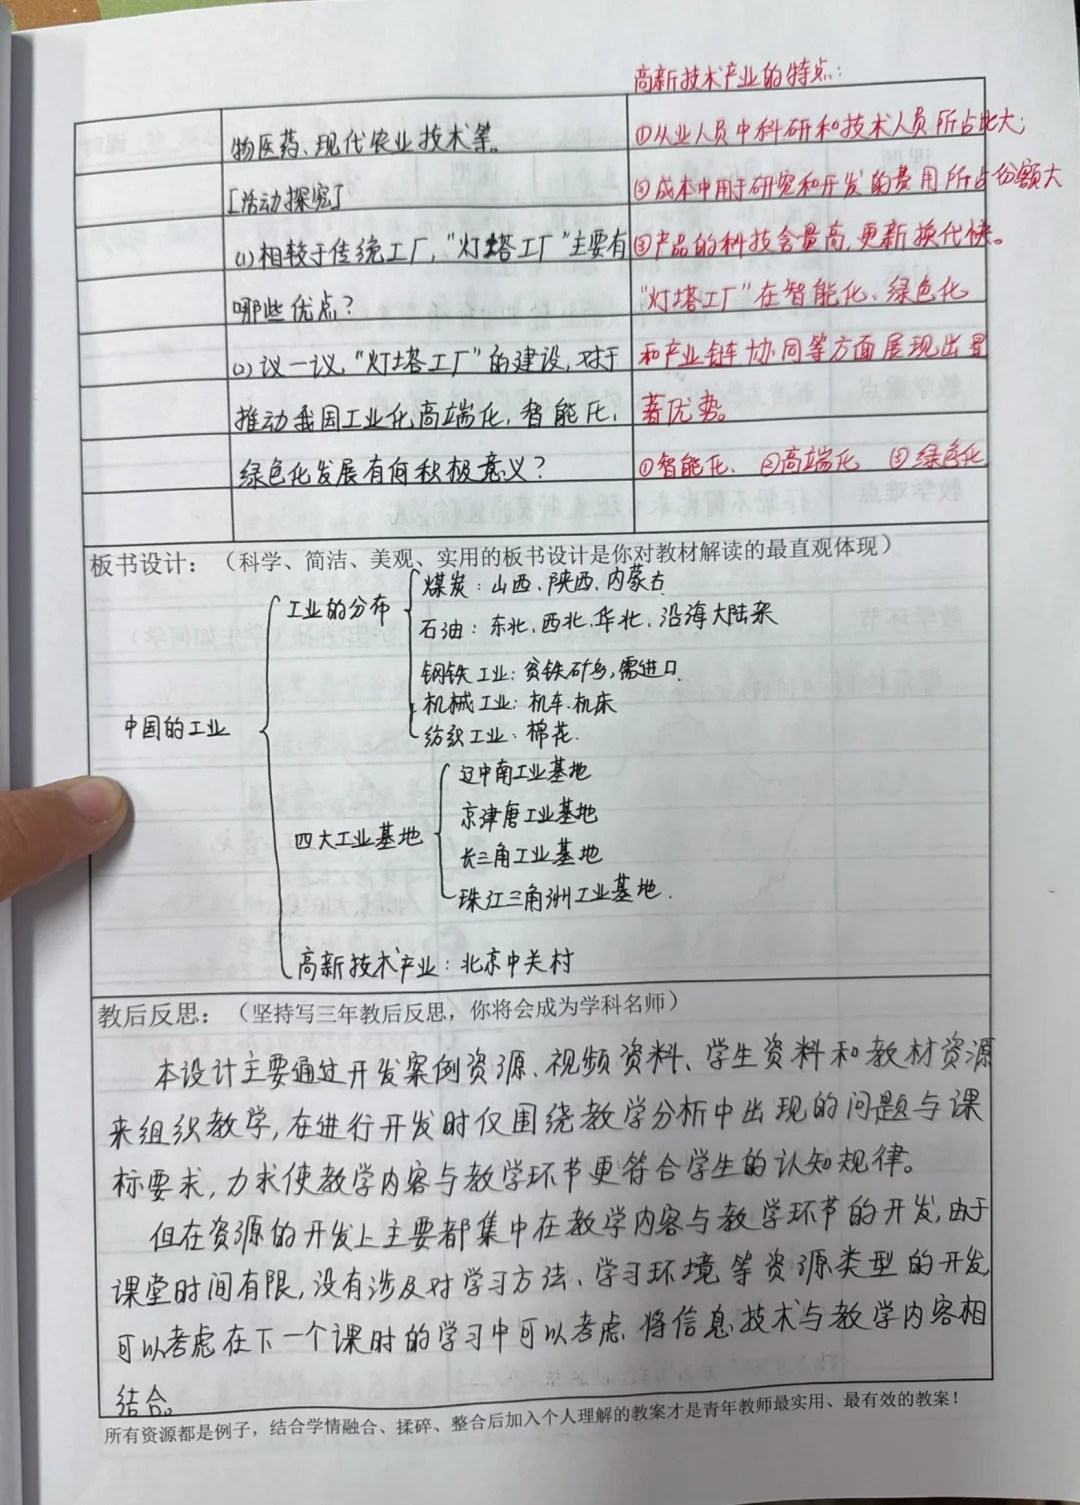 高新技术产业的特点:
物医药、现代农业技术等。
[活动探究]
(1)相较于传统工厂,“灯塔工厂”主要有
哪些优点?
议一议,“灯塔工厂”的建设,对于
推动我国工业化高端化,智能化,
绿色化发展有何积极意义?
①从业人员中科研和技术人员所占比大;
②成本中用于研究和开发的费用所占份额大
③产品的科技含量高,更新换代快。
“灯塔工厂”在智能化、绿色化
和产业链协同等方面展现出显
著优势。
①智能化、 ②高端化 ③绿色化
板书设计:(科学、简洁、美观、实用的板书设计是你对教材解读的最直观体现)
中国的工业
工业的分布
煤炭:山西、陕西、内蒙古
石油:东北、西北、华北、沿海大陆架
钢铁工业:贫铁矿多,需进口.
机械工业:机车、机床
纺织工业:棉花.
四大工业基地
辽中南工业基地
京津唐工业基地
长三角工业基地
珠江三角洲工业基地.
高新技术产业:北京中关村
教后反思:(坚持写三年教后反思,你将会成为学科名师)
本设计主要通过开发案例资源、视频资料、学生资料和教材资源
来组织教学,在进行开发时仅围绕教学分析中出现的问题与课
标要求,力求使教学内容与教学环节更符合学生的认知规律。
但在资源的开发上主要都集中在教学内容与教学环节的开发,由于
课堂时间有限,没有涉及对学习方法、学习环境等资源类型的开发,
可以考虑在下一个课时的学习中可以考虑将信息技术与教学内容相
结合。
所有资源都是例子,结合学情融合、揉碎、整合后加入个人理解的教案才是青年教师最实用、最有效的教案!